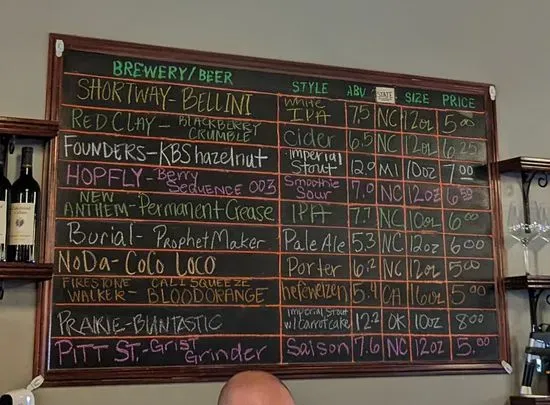 BREWERY/BEER STYLE ABV STATE SIZE PRICE
SHORTWAY-BELLINI White IPA 7.5 NC 12oz 5.00
RED CLAY-BLACKBERRY CRUMBLE Cider 6.5 NC 12oz 6.25
FOUNDERS-KBS hazelnut imperial Stout 12.0 MI 10oz 7.00
HOPFLY-Berry Sequence 003 Smoothie Sour 7.0 NC 12oz 6.50
NEW ANTHEM-Permanent Grease IPA 7.7 NC 10oz 6.00
Burial-Prophet Maker Pale Ale 5.3 NC 12oz 6.00
NoDa-CoCo Loco Porter 6.2 NC 12oz 5.00
FIRESTONE WALKER-CALI SQUEEZE BLOODORANGE hefeweizen 5.4 CA 16oz 5.00
PRAIRIE-BUNTASTIC imperial Stout w/carrotcake 12.2 OK 10oz 8.00
PITT ST.-Grist Grinder Saison 7.6 NC 12oz 5.00